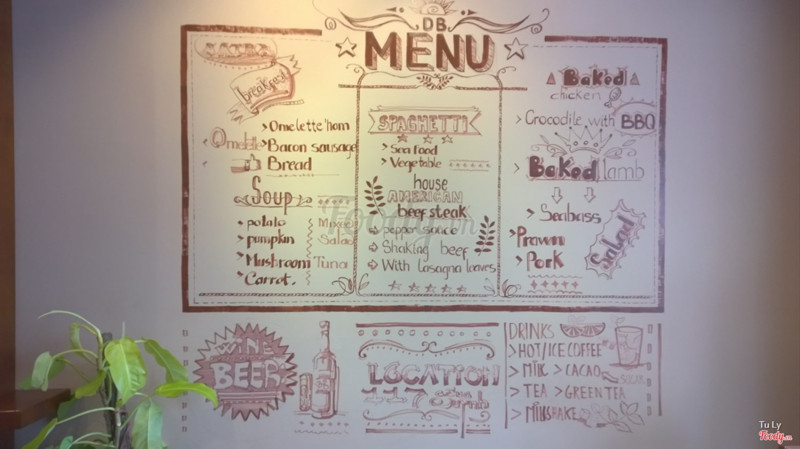 DB
MENU
breakfast
> Omelette 'ham
Omelette > Bacon sausage
Bread
Soup
potato
Mixed
pumpkin
Salad
Mushroom
Tuna
Carrot
SPAGHETTI
> Seafood
> Vegetable
house
AMERICAN
beef steak
pepper sauce
Shaking beef
With lasagna leaves
Baked
chicken
> Crocodile with BBQ
Baked lamb
> Seabass
Prawn
Pork
Salad
WINE
BEER
LOCATION
DRINKS
> HOT/ICE COFFEE
> MILK > CACAO
SUGAR
> TEA > GREEN TEA
> MILKSHAKE
Foody.vn
Tu Ly
Foody.vn